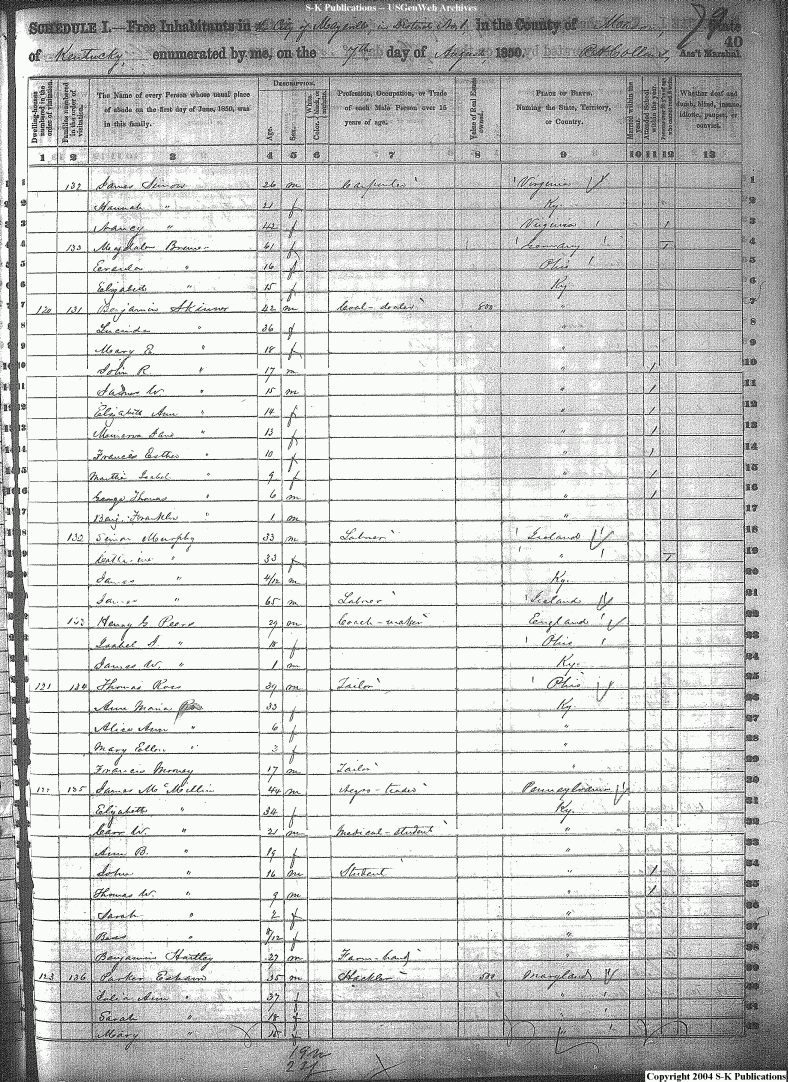 S-K Publications -- USGenWeb Archives
SCHEDULE I.—Free Inhabitants in the City of Maysville, in District No. 1, in the County of Mason, State
79
40
of Kentucky, enumerated by me, on the 7th day of August, 1850. Ass't Marshal.
Dwelling-houses numbered in the order of visitation.
Families numbered in the order of visitation.
The Name of every Person whose usual place of abode on the first day of June, 1850, was in this family.
Description.
Age.
Sex.
Color, White, black, or mulatto.
Profession, Occupation, or Trade of each Male Person over 15 years of age.
Value of Real Estate owned.
Place of Birth, Naming the State, Territory, or Country.
Married within the year.
Attended School within the year.
Persons over 20 y'rs of age who cannot read & write.
Whether deaf and dumb, blind, insane, idiotic, pauper, or convict.
1 2 3 4 5 6 7 8 9 10 11 12 13
1 132 James 26 m Carpenter Virginia 1
2 Hannah " 21 f Ky. 2
3 Nancy " 42 f Virginia 1 3
4 133 61 f Germany 1 4
5 " 16 f Ohio 5
6 Elizabeth " 15 f Ky 6
7 120 131 Benjamin Skinner 42 m Coal-dealer 800 " 7
8 Lucinda " 36 f " 8
9 Mary E. " 18 f " 9
10 John R. " 17 m " 1 10
11 James W. " 15 m " 1 11
12 Elizabeth Ann " 14 f " 1 12
13 Minerva Jane " 13 f " 1 13
14 Frances Esther " 10 f " 1 14
15 Martha Isabel " 9 f " 1 15
16 George Thomas " 6 m " 1 16
17 Benj. Franklin " 1 m " 17
18 132 Simon Murphy 33 m Laborer Ireland 18
19 Catherine " 33 f " 1 19
20 James " 4/12 m Ky. 20
James " 65 m Laborer Ireland 21
Henry G. 29 m Coach-maker England 22
Isabel " 18 f Ohio
James W. " 1 m Ky. 24
121 134 Thomas Ross 39 m Tailor Ohio 25
Anna Maria 33 f Ky. 26
Alice Ann " 6 f " 27
Mary Ellen " 3 f " 28
Francis 17 m Tailor " 29
122 135 James McMillin 44 m Negro-trader Pennsylvania 30
Elizabeth " 34 f Ky. 31
W. " 21 m Medical-student " 32
Ann B. " 19 f " 33
John " 16 m Student " 1 34
Thomas W. " 9 m " 1 35
Sarah " 2 f " 36
" 8/12 f " 37
Benjamin Hartley 27 m Farm-hand " 38
123 136 Parker 35 m 500 Maryland 39
Julia Ann " 37 f " 40
Sarah " 18 f " 41
Mary " 15 f " 42
19 m
Copyright 2004 S-K Publications